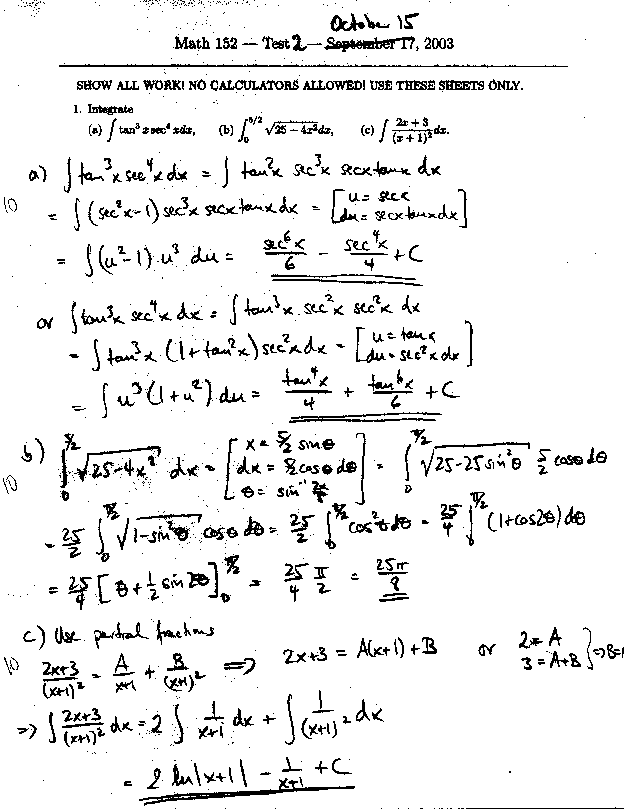 October 15
Math 152 — Test 2 — September 17, 2003
SHOW ALL WORK! NO CALCULATORS ALLOWED! USE THESE SHEETS ONLY.
1. Integrate
(a) ∫ tan³ x sec⁴ x dx, (b) ∫₀^{5/2} √(25 − 4x²) dx, (c) ∫ (2x + 3)/(x + 1)² dx.
a) ∫ tan³x sec⁴x dx = ∫ tan²x sec³x secx tanx dx
10 = ∫ (sec²x − 1) sec³x secx tanx dx = [u = secx, du = secx tanx dx]
= ∫ (u² − 1) u³ du = sec⁶x/6 − sec⁴x/4 + C
or ∫ tan³x sec⁴x dx = ∫ tan³x sec²x sec²x dx
= ∫ tan³x (1 + tan²x) sec²x dx = [u = tanx, du = sec²x dx]
= ∫ u³ (1 + u²) du = tan⁴x/4 + tan⁶x/6 + C
b) ∫₀^{5/2} √(25 − 4x²) dx = [x = 5/2 sinθ, dx = 5/2 cosθ dθ, θ = sin⁻¹ 2x/5] = ∫₀^{π/2} √(25 − 25 sin²θ) 5/2 cosθ dθ
10
= 25/2 ∫₀^{π/2} √(1 − sin²θ) cosθ dθ = 25/2 ∫₀^{π/2} cos²θ dθ = 25/4 ∫₀^{π/2} (1 + cos2θ) dθ
= 25/4 [θ + 1/2 sin 2θ]₀^{π/2} = 25/4 π/2 = 25π/8
c) Use partial fractions
10 (2x+3)/(x+1)² = A/(x+1) + B/(x+1)² ⇒ 2x+3 = A(x+1) + B or 2 = A, 3 = A+B } ⇒ B=1
⇒ ∫ (2x+3)/(x+1)² dx = 2 ∫ 1/(x+1) dx + ∫ 1/(x+1)² dx
= 2 ln|x+1| − 1/(x+1) + C